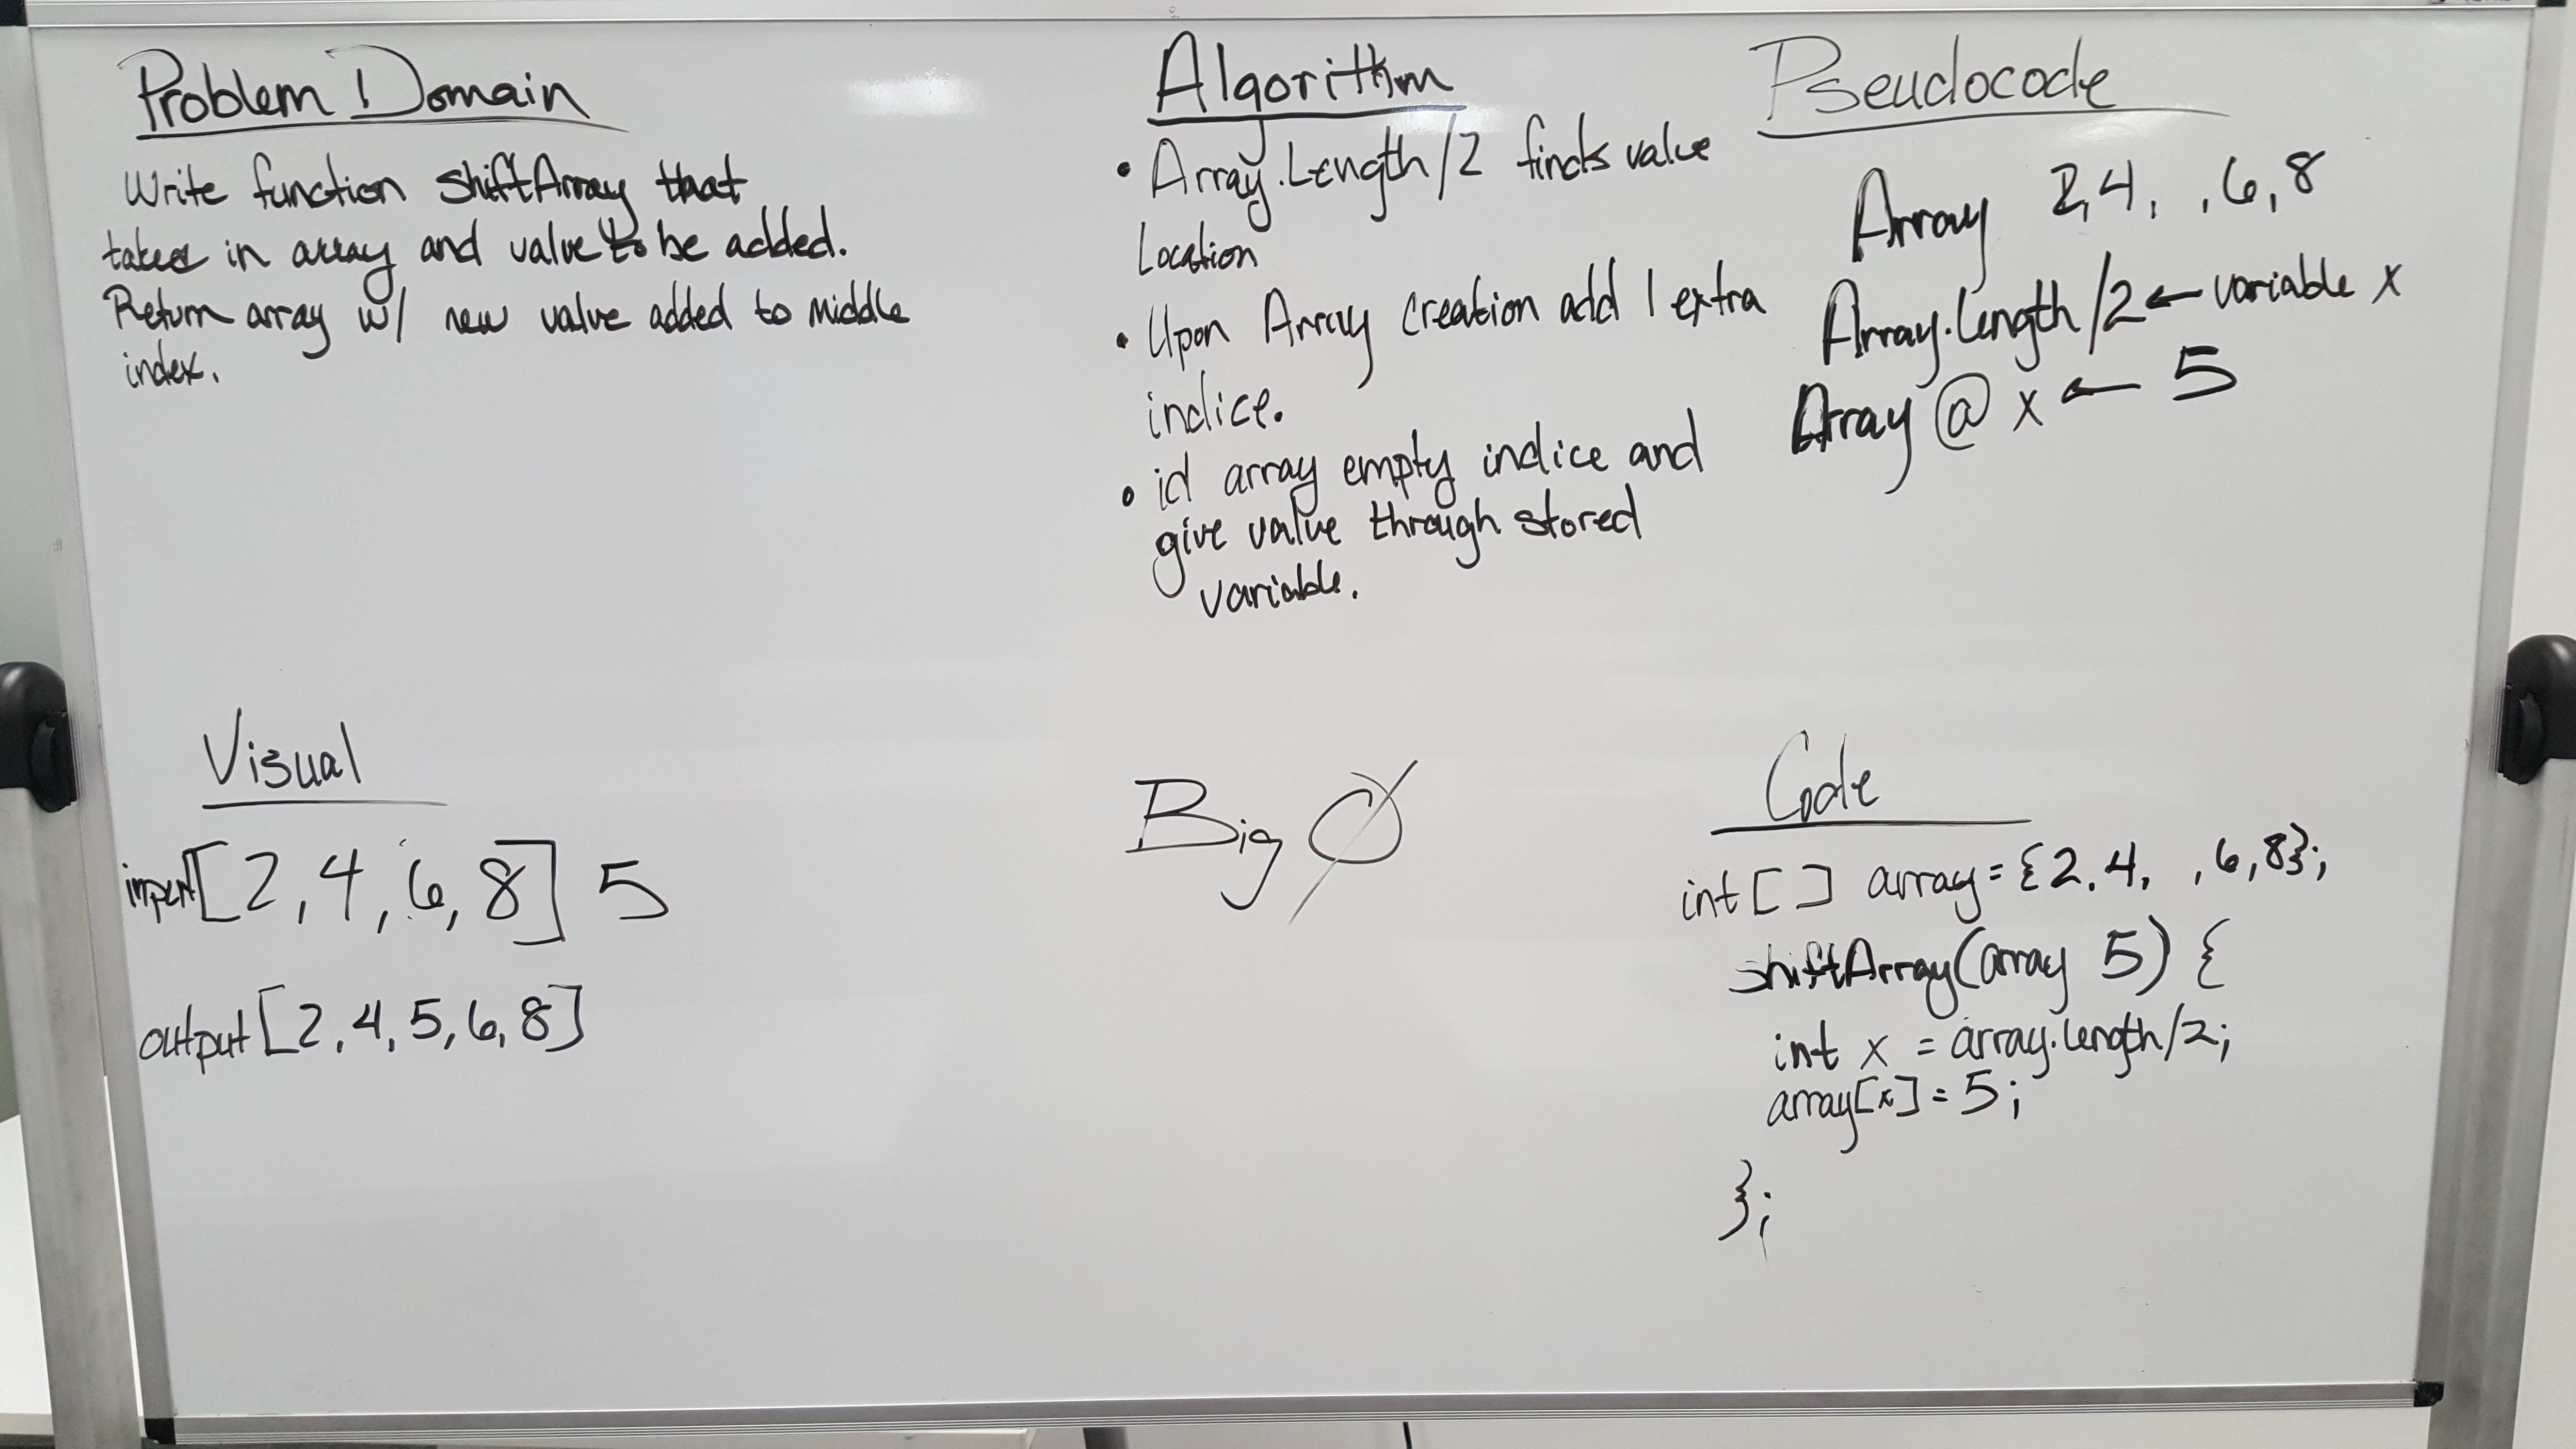 Problem Domain
Write function shiftArray that
takes in array and value to be added.
Return array w/ new value added to middle
index.
Algorithm
• Array.Length/2 finds value
Location
• Upon Array creation add 1 extra
indice.
• id array empty indice and
give value through stored
variable.
Pseudocode
Array 2,4, ,6,8
Array.length/2 ← variable x
Array @ x ← 5
Visual
input [2,4,6,8] 5
output [2,4,5,6,8]
Big O
Code
int[] array = {2,4, ,6,8};
shiftArray(array 5) {
int x = array.length/2;
array[x] = 5;
};